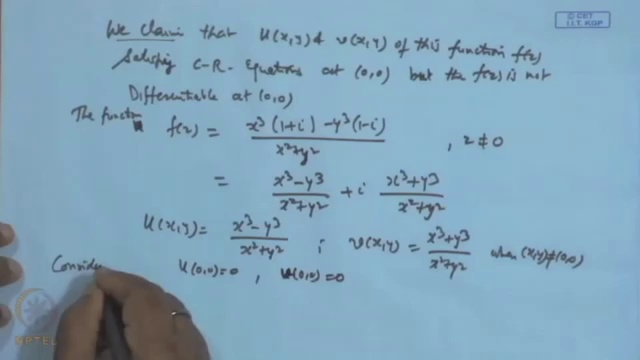 © CET
I.I.T. KGP
We claim that u(x,y) & v(x,y) of this function f(z)
Satisfying C-R- Equations at (0,0) but the f(z) is not
Differentiable at (0,0)
The function f(z) = x³(1+i) - y³(1-i) / x²+y² , z ≠ 0
= x³-y³ / x²+y² + i x³+y³ / x²+y²
u(x,y) = x³-y³ / x²+y² ; v(x,y) = x³+y³ / x²+y² when (x,y)≠(0,0)
Conside u(0,0)=0 , v(0,0)=0
NPTEL